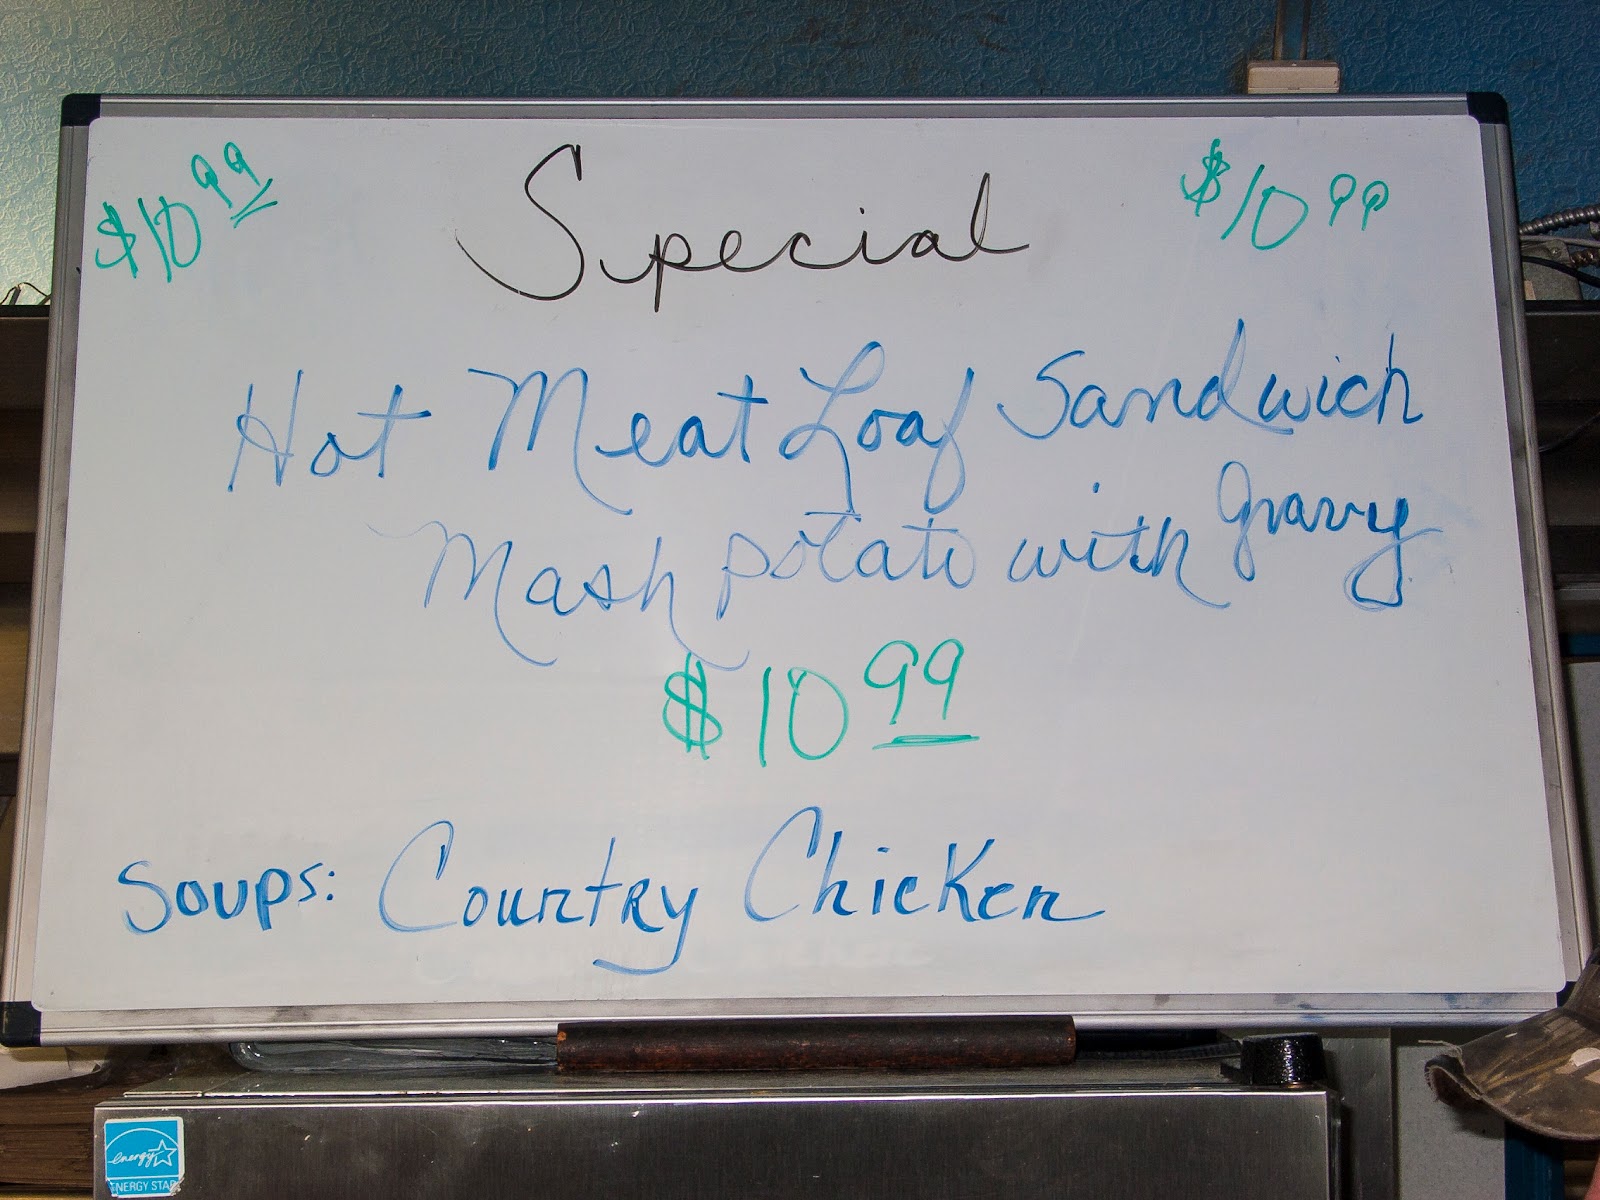 $10 99 Special $10 99
Hot Meat Loaf Sandwich
Mash potato with gravy
$10 99
Soups: Country Chicken
energy
ENERGY STAR